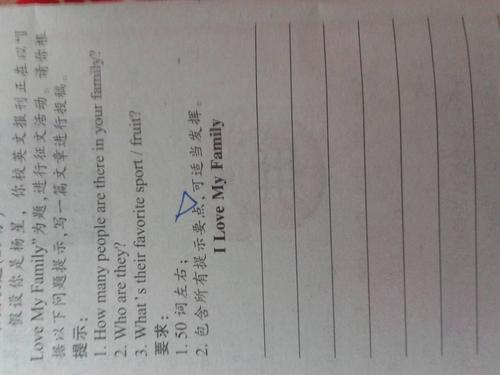 假设你是杨星，你校英文报刊正在以"I
Love My Family"为题,进行征文活动。请你根
据以下问题提示,写一篇文章进行投稿。
提示：
1. How many people are there in your family?
2. Who are they?
3. What's their favorite sport / fruit?
要求：
1. 50 词左右；
2. 包含所有提示要点,可适当发挥。
I Love My Family